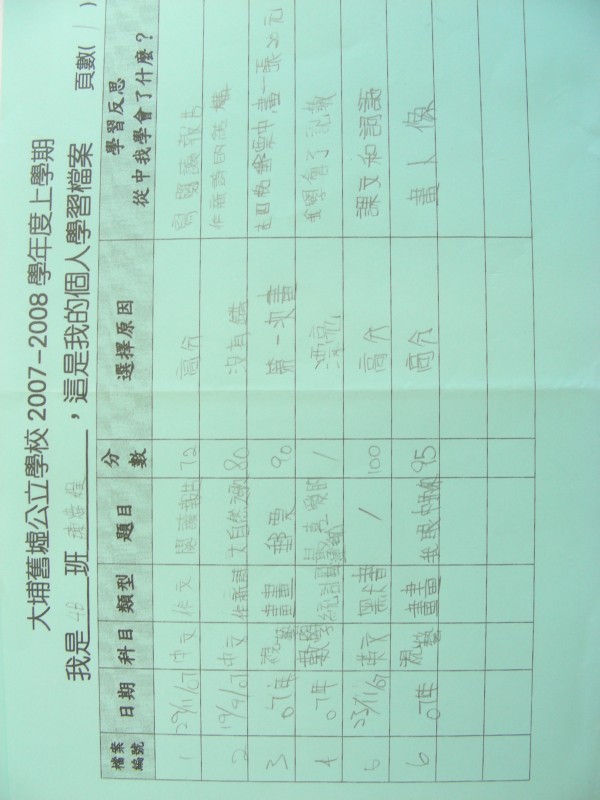 大埔舊墟公立學校 2007-2008 學年度上學期
我是 4B 班 ，這是我的個人學習檔案 頁數( 1 )
檔案編號 日期 科目 類型 題目 分數 選擇原因 學習反思 從中我學會了什麼？
1 29/11/07 中文 作文 閱讀報告 72 高分 閱讀報告
2 19/9/07 中文 作 大自然 80 沒有錯 作
3 07年 視藝 畫畫 郵票 90 第一次畫 在日 郵票中,畫一張20元
4 07年 數學 統計圖 最喜歡的 / 漂亮 我學會了
5 23/11/07 英文 默書 / 100 高分 課文和詞語
6 07年 視藝 畫畫 95 高分 畫人像